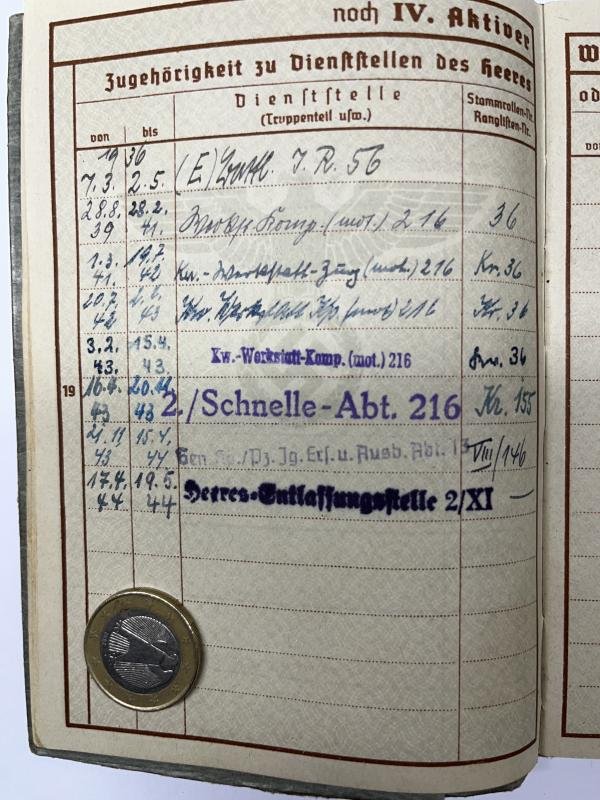 noch IV. Aktiver
Zugehörigkeit zu Dienststellen des Heeres
von bis Dienststelle Stammrollen-Nr.
(Truppenteil usw.) Ranglisten-Nr.
19 36
7.3. 2.5. (E) I.R. 56
28.8. 28.2. Werkst. Komp. (mot.) 216 36
39 41.
1.3. 19.7. Kw.-Werkstatt-Zug (mot.) 216 Kr. 36
41. 42
20.7. Kw. Werkstatt Kp. (mot) 216 Kr. 36
42 43
3.2. 15.4. Kw.-Werkstatt-Komp. (mot.) 216 36
43. 43.
19 16.4. 20.11. 2./Schnelle-Abt. 216 Kr. 155
43 43
21.11 15.4. Gen. Kp./Pz. Jg. Ers. u. Ausb. Abt. 13 VIII/146
43 44
17.4. 19.5. Heeres-Entlassungsstelle 2/XI —
44 44
W
od
vo